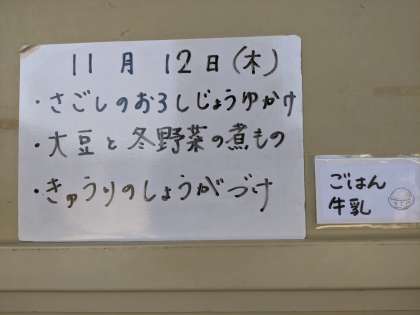 11月 12日(木)
・さごしのおろしじょうゆかけ
・大豆と冬野菜の煮もの
・きゅうりのしょうがづけ
ごはん
牛乳